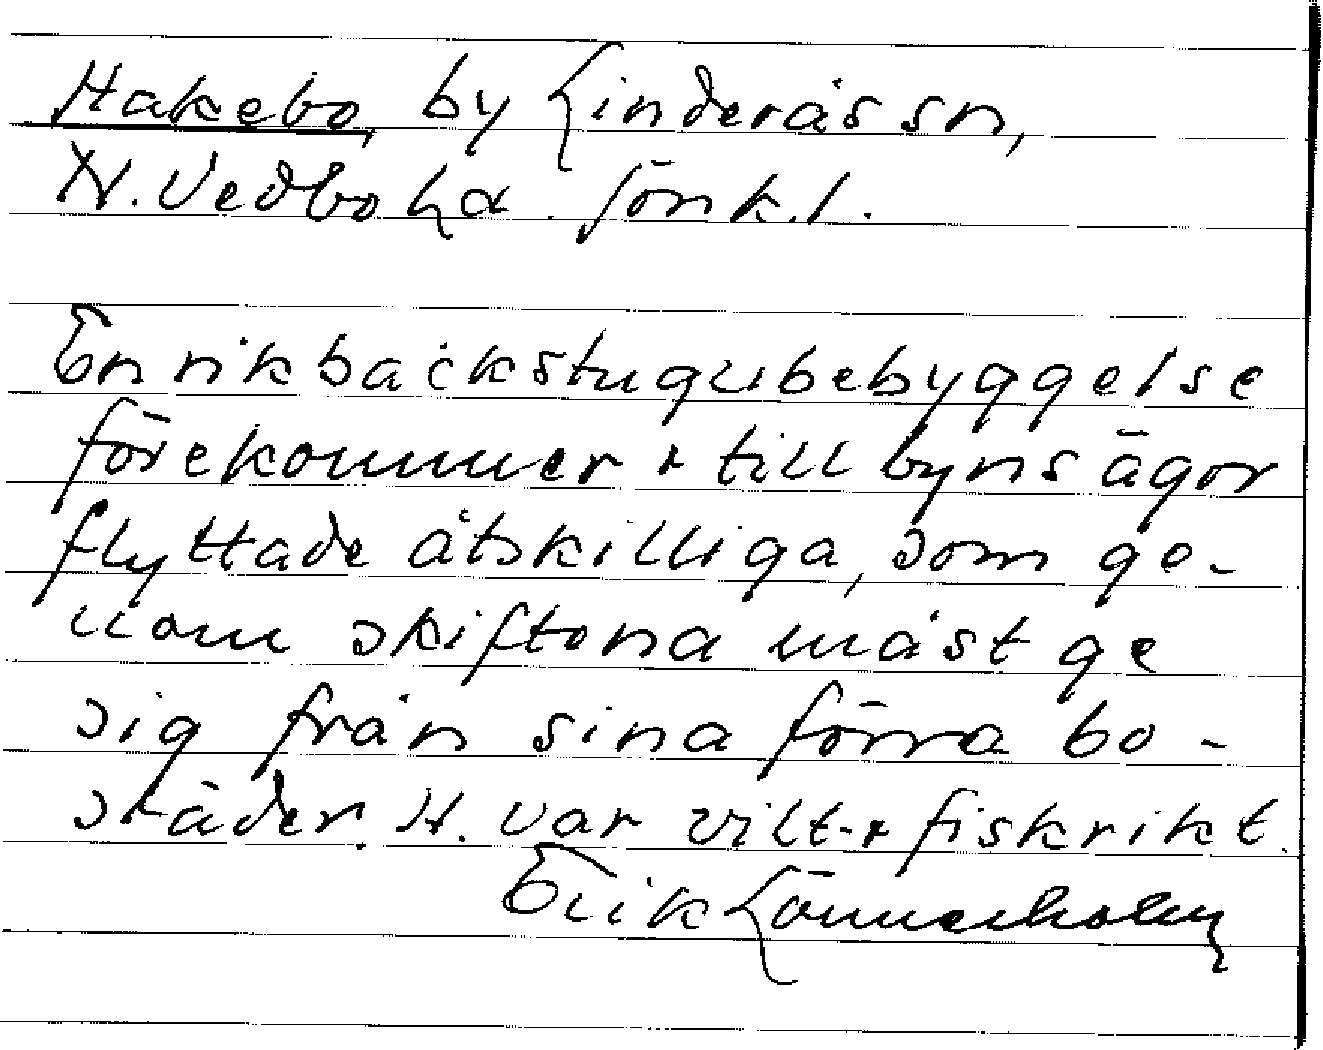 Hakebo, by Linderås sn,
N. Vedbo hd. Jönk. l.
En rik backstugubebyggelse
förekommer + till byns ägor
flyttade åtskilliga, som ge-
nom skiftena måst ge
sig från sina förra bo-
städer. H. var vilt- + fiskrikt.
Erik Lönnerholm